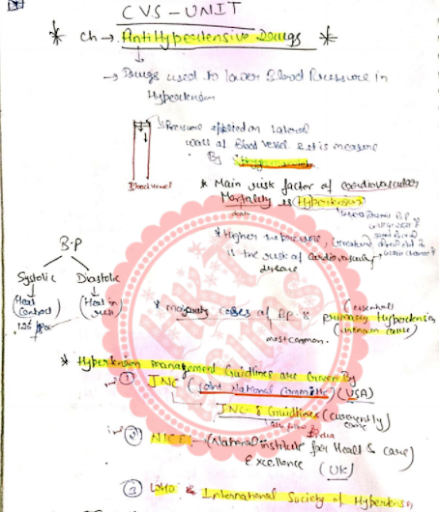 CVS-UNIT
* Ch → AntiHypertensive Drugs *
→ Drugs used to lower Blood Pressure in
Hypertension
Pressure applied on lateral
wall of Blood Vessel & it is measure
By
Blood vessel
* Main risk factor of cardiovascular
Mortality is Hypertension
death
* Higher the pressure, greater
is the risk of cardiovascular
disease
B.P
Systolic Diastolic
(Heart (Heart in
Contract) rest)
* majority cases of B.P. is (essential)
primary Hypertension
(unknown cause)
most common.
* Hypertension management Guidlines are Given By
① JNC (Joint National Committee) (USA)
JNC-8 Guidlines (currently)
India
② NICE — (National institute for Health & care)
Excellence (UK)
③ WHO & International Society of Hypertension